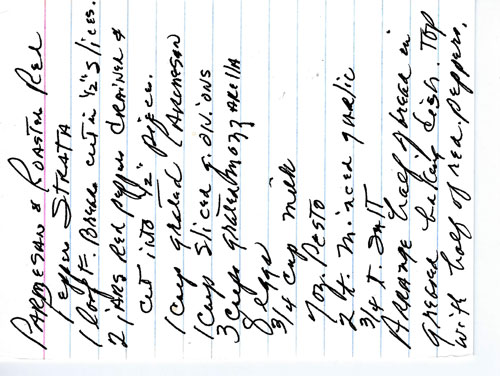 PARMESAN & ROASTED RED
Pepper STRATA
1 loaf F. Bread cut in 1/2" slices.
2 jARS Red peppers drained &
cut into 1/2" pieces.
1 cup grated PARMESAN
1 cup sliced g. ONIONS
3 cups grated mozzarella
8 eggs
3/4 cup milk
7 oz. Pesto
2 t. minced garlic
3/4 t. SALT
ARRANGE half of bread in
greased baking dish. Top
with half of red peppers.